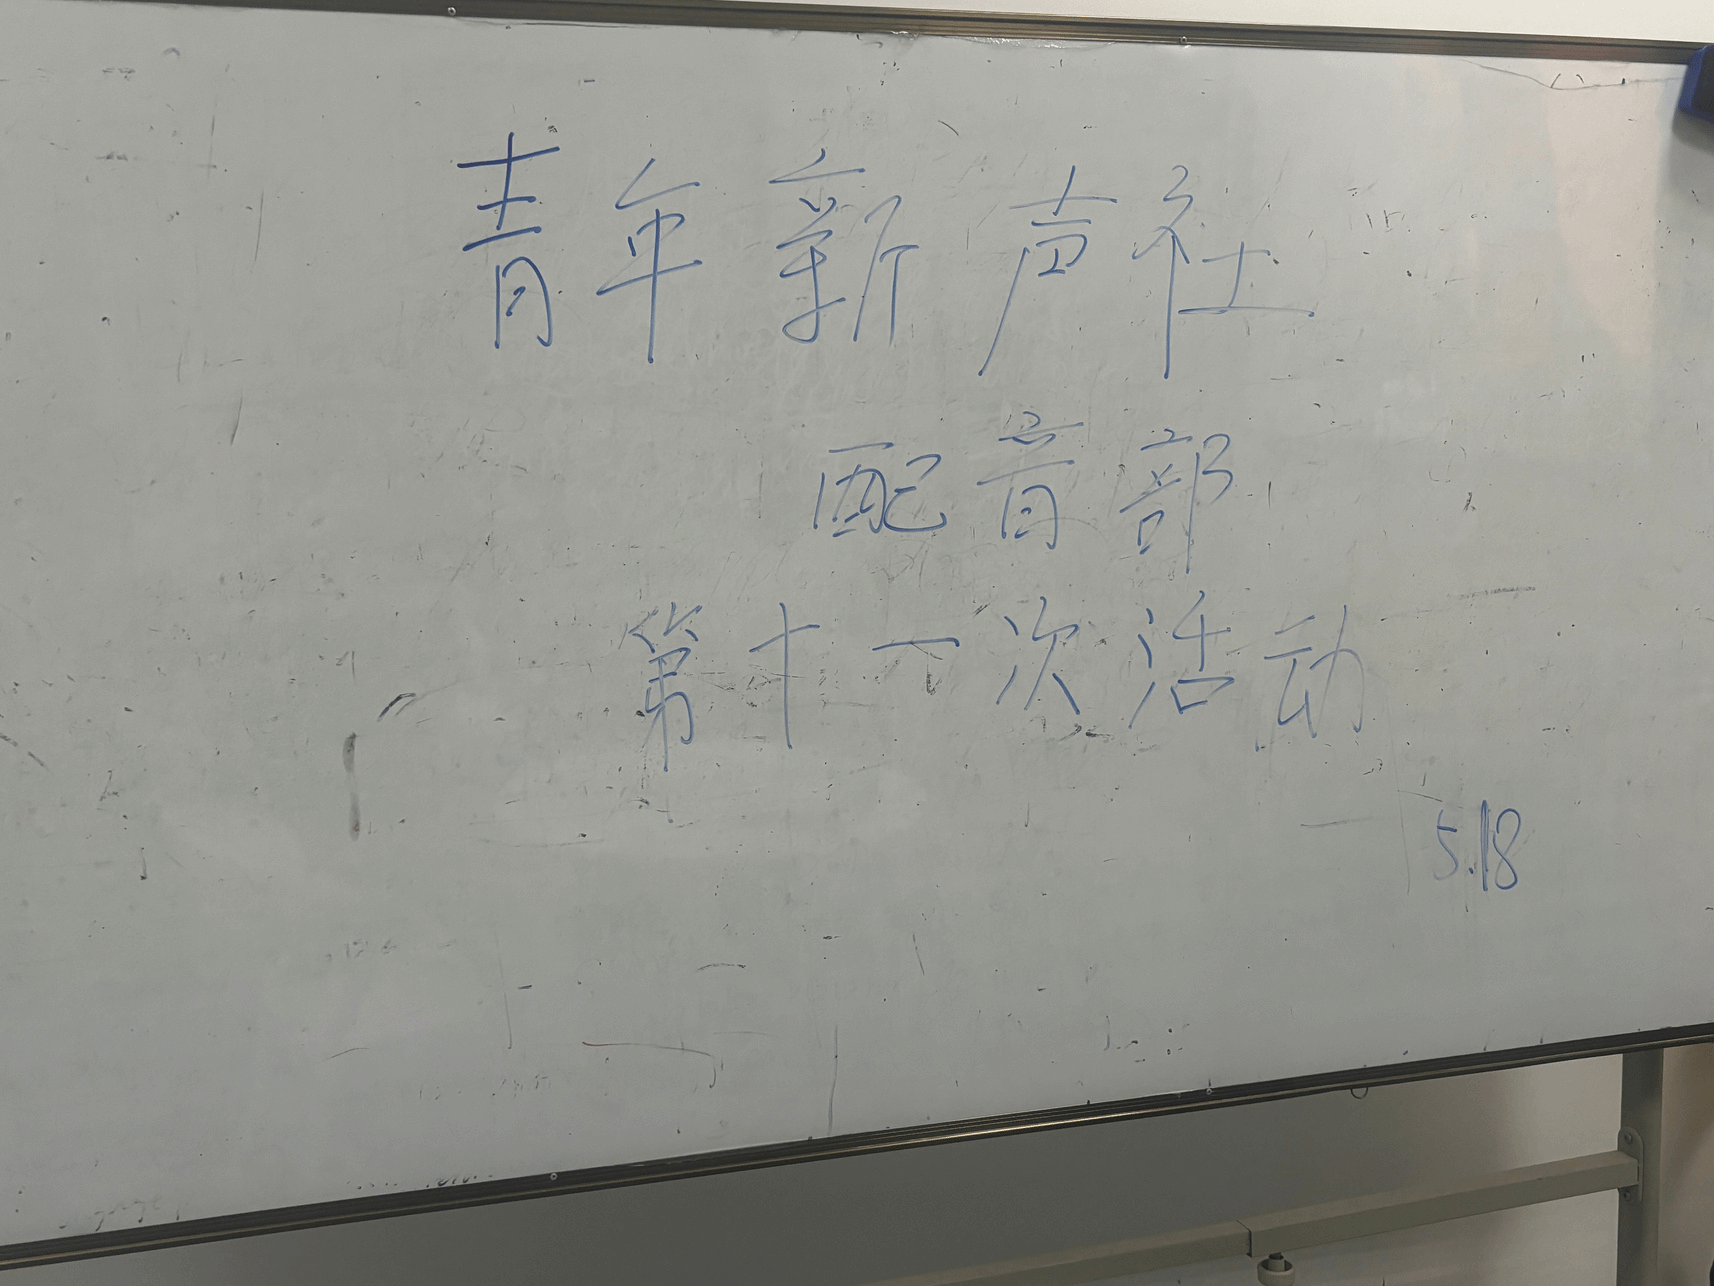 青年新声社
配音部
第十一次活动
5.18